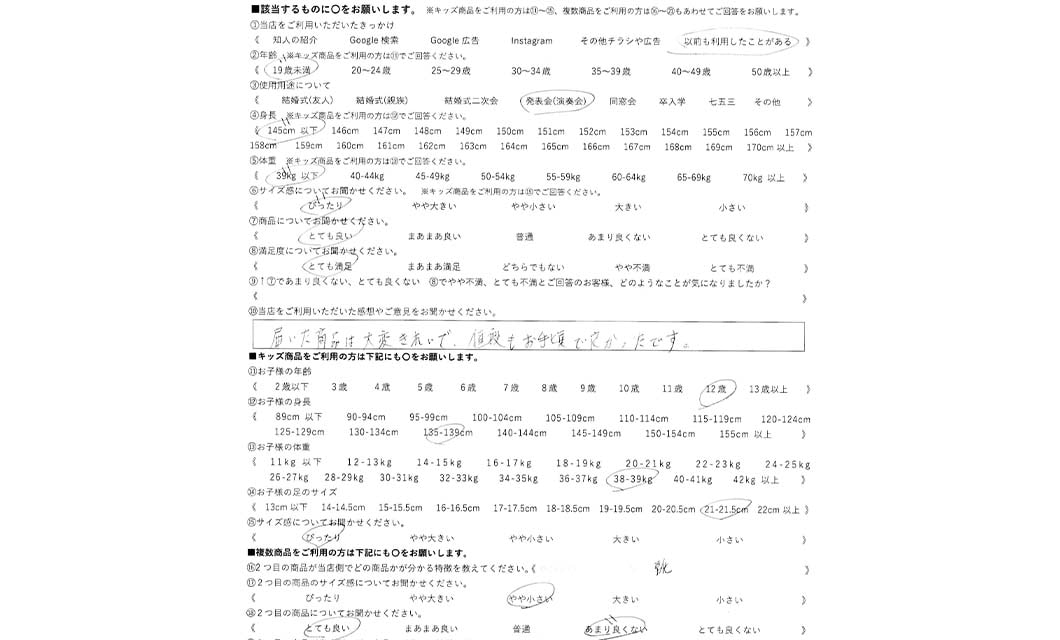 ■該当するものに〇をお願いします。 ※キッズ商品をご利用の方は⑪～⑮、複数商品をご利用の方は⑯～⑳もあわせてご回答をお願いします。
①当店をご利用いただいたきっかけ
《 知人の紹介 Google 検索 Google 広告 Instagram その他チラシや広告 以前も利用したことがある 》
②年齢 ※キッズ商品をご利用の方は⑪でご回答ください。
《 19歳未満 20～24歳 25～29歳 30～34歳 35～39歳 40～49歳 50歳以上 》
③使用用途について
《 結婚式(友人) 結婚式(親族) 結婚式二次会 発表会(演奏会) 同窓会 卒入学 七五三 その他 》
④身長 ※キッズ商品をご利用の方は⑫でご回答ください。
《 145cm 以下 146cm 147cm 148cm 149cm 150cm 151cm 152cm 153cm 154cm 155cm 156cm 157cm
158cm 159cm 160cm 161cm 162cm 163cm 164cm 165cm 166cm 167cm 168cm 169cm 170cm 以上 》
⑤体重 ※キッズ商品をご利用の方は⑬でご回答ください。
《 39kg 以下 40-44kg 45-49kg 50-54kg 55-59kg 60-64kg 65-69kg 70kg 以上 》
⑥サイズ感についてお聞かせください。 ※キッズ商品をご利用の方は⑮でご回答ください。
《 ぴったり やや大きい やや小さい 大きい 小さい 》
⑦商品についてお聞かせください。
《 とても良い まあまあ良い 普通 あまり良くない とても良くない 》
⑧満足度についてお聞かせください。
《 とても満足 まあまあ満足 どちらでもない やや不満 とても不満 》
⑨↑⑦であまり良くない、とても良くない ⑧でやや不満、とても不満とご回答のお客様、どのようなことが気になりましたか？
《 》
⑩当店をご利用いただいた感想やご意見をお聞かせください。
届いた商品は大変きれいで、値段もお手頃で良かったです。
■キッズ商品をご利用の方は下記にも〇をお願いします。
⑪お子様の年齢
《 2歳以下 3歳 4歳 5歳 6歳 7歳 8歳 9歳 10歳 11歳 12歳 13歳以上 》
⑫お子様の身長
《 89cm 以下 90-94cm 95-99cm 100-104cm 105-109cm 110-114cm 115-119cm 120-124cm
125-129cm 130-134cm 135-139cm 140-144cm 145-149cm 150-154cm 155cm 以上 》
⑬お子様の体重
《 11kg 以下 12-13kg 14-15kg 16-17kg 18-19kg 20-21kg 22-23kg 24-25kg
26-27kg 28-29kg 30-31kg 32-33kg 34-35kg 36-37kg 38-39kg 40-41kg 42kg 以上 》
⑭お子様の足のサイズ
《 13cm以下 14-14.5cm 15-15.5cm 16-16.5cm 17-17.5cm 18-18.5cm 19-19.5cm 20-20.5cm 21-21.5cm 22cm 以上 》
⑮サイズ感についてお聞かせください。
《 ぴったり やや大きい やや小さい 大きい 小さい 》
■複数商品をご利用の方は下記にも〇をお願いします。
⑯2つ目の商品が当店側でどの商品かが分かる特徴を教えてください。《 靴 》
⑰2つ目の商品のサイズ感についてお聞かせください。
《 ぴったり やや大きい やや小さい 大きい 小さい 》
⑱2つ目の商品についてお聞かせください。
《 とても良い まあまあ良い 普通 あまり良くない とても良くない 》